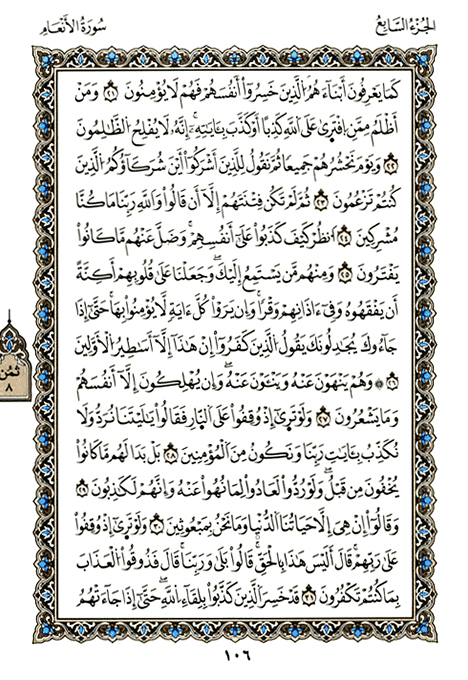 الجزء السابع
سورة الأنعام
كَمَا يَعْرِفُونَ أَبْنَاءَهُمُ الَّذِينَ خَسِرُوا أَنْفُسَهُمْ فَهُمْ لَا يُؤْمِنُونَ ٢١ وَمَنْ
أَظْلَمُ مِمَّنِ افْتَرَى عَلَى اللَّهِ كَذِبًا أَوْ كَذَّبَ بِـَٔايَاتِهِ إِنَّهُ لَا يُفْلِحُ الظَّالِمُونَ
٢٢ وَيَوْمَ نَحْشُرُهُمْ جَمِيعًا ثُمَّ نَقُولُ لِلَّذِينَ أَشْرَكُوا أَيْنَ شُرَكَاؤُكُمُ الَّذِينَ
كُنْتُمْ تَزْعُمُونَ ٢٣ ثُمَّ لَمْ تَكُنْ فِتْنَتَهُمْ إِلَّا أَنْ قَالُوا وَاللَّهِ رَبِّنَا مَا كُنَّا
مُشْرِكِينَ ٢٤ انْظُرْ كَيْفَ كَذَبُوا عَلَى أَنْفُسِهِمْ وَضَلَّ عَنْهُمْ مَا كَانُوا
يَفْتَرُونَ ٢٥ وَمِنْهُمْ مَنْ يَسْتَمِعُ إِلَيْكَ وَجَعَلْنَا عَلَى قُلُوبِهِمْ أَكِنَّةً
أَنْ يَفْقَهُوهُ وَفِي ءَاذَانِهِمْ وَقْرًا وَإِنْ يَرَوْا كُلَّ ءَايَةٍ لَا يُؤْمِنُوا بِهَا حَتَّى إِذَا
جَاءُوكَ يُجَادِلُونَكَ يَقُولُ الَّذِينَ كَفَرُوا إِنْ هَذَا إِلَّا أَسَاطِيرُ الْأَوَّلِينَ
٢٦ وَهُمْ يَنْهَوْنَ عَنْهُ وَيَنْـَٔوْنَ عَنْهُ وَإِنْ يُهْلِكُونَ إِلَّا أَنْفُسَهُمْ
وَمَا يَشْعُرُونَ ٢٧ وَلَوْ تَرَى إِذْ وُقِفُوا عَلَى النَّارِ فَقَالُوا يَالَيْتَنَا نُرَدُّ وَلَا
نُكَذِّبُ بِـَٔايَاتِ رَبِّنَا وَنَكُونُ مِنَ الْمُؤْمِنِينَ ٢٨ بَلْ بَدَا لَهُمْ مَا كَانُوا
يُخْفُونَ مِنْ قَبْلُ وَلَوْ رُدُّوا لَعَادُوا لِمَا نُهُوا عَنْهُ وَإِنَّهُمْ لَكَاذِبُونَ ٢٩
وَقَالُوا إِنْ هِيَ إِلَّا حَيَاتُنَا الدُّنْيَا وَمَا نَحْنُ بِمَبْعُوثِينَ ٣٠ وَلَوْ تَرَى إِذْ وُقِفُوا
عَلَى رَبِّهِمْ قَالَ أَلَيْسَ هَذَا بِالْحَقِّ قَالُوا بَلَى وَرَبِّنَا قَالَ فَذُوقُوا الْعَذَابَ
بِمَا كُنْتُمْ تَكْفُرُونَ ٣١ قَدْ خَسِرَ الَّذِينَ كَذَّبُوا بِلِقَاءِ اللَّهِ حَتَّى إِذَا جَاءَتْهُمُ
ثمن
٨
١٠٦